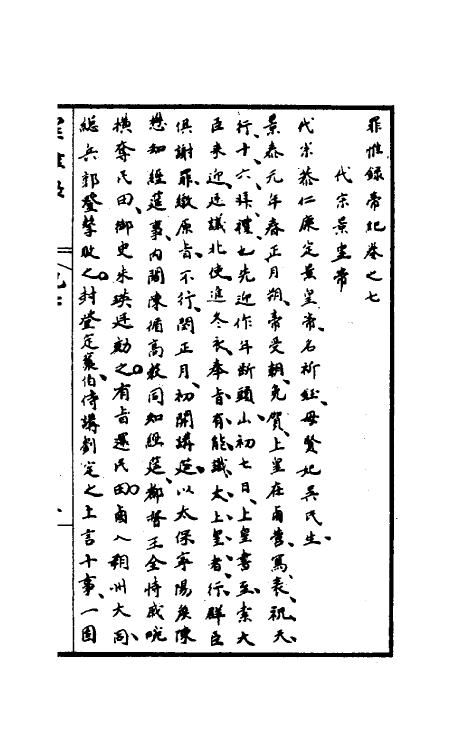 罪惟錄帝紀卷之七
代宗景皇帝
代宗恭仁康定景皇帝名祈鈺母賢妃吳氏生
景泰元年春正月朔帝受朝免賀上皇在鹵營寫表祝天
行十六拜禮也先迎作年斷頭山初七日上皇書至索大
臣來迎廷議北使進冬衣奉旨有能識太上皇者行群臣
俱謝罪繳原旨不行閏正月初開講筵以太保寧陽侯陳
懋知經筵事內閣陳循高穀同知經筵都督王全恃戚畹
橫奪民田御史朱瑛廷劾之有旨還民田鹵入朔州大同
總兵郭登擊敗之封登定襄伯侍講劉定之上言十事一固